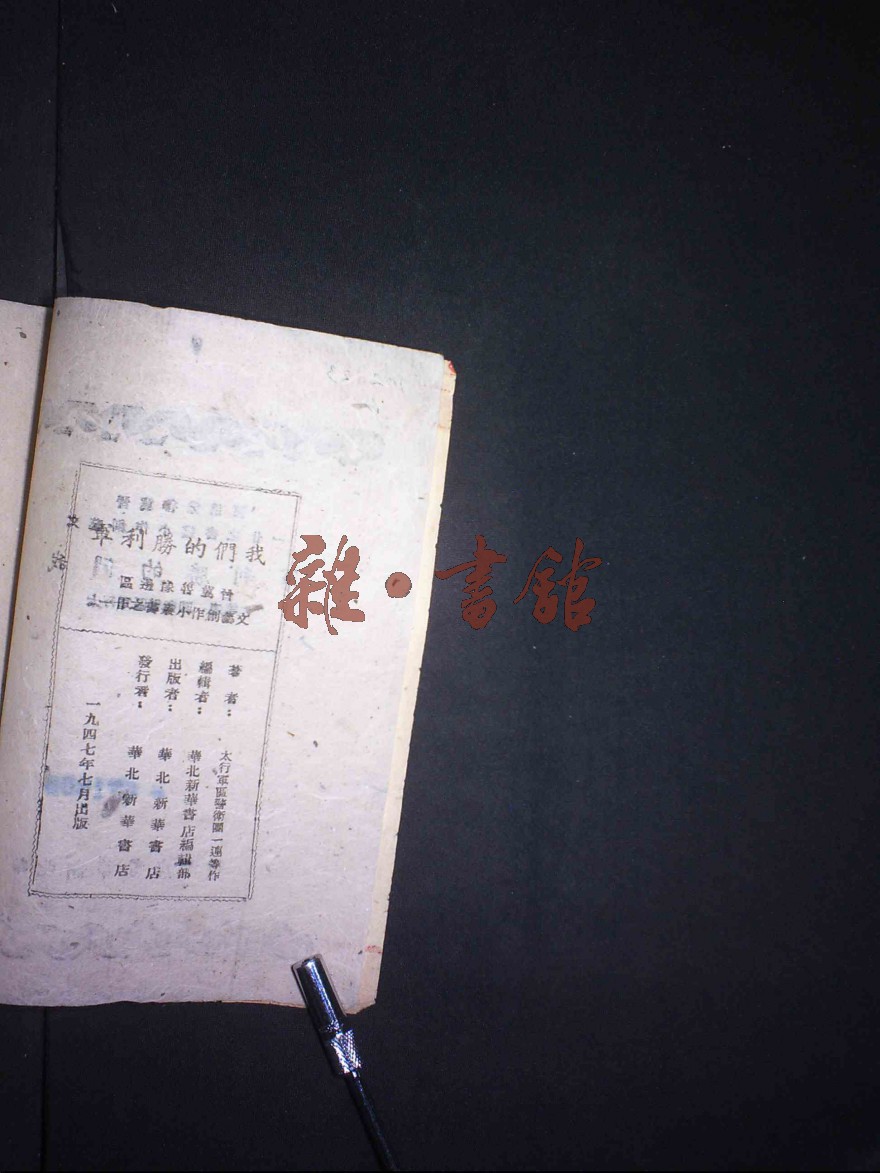 我們的勝利軍
晉冀魯豫邊區
文藝創作小叢書之
著者：太行軍區警衛團一連等作
編輯者：華北新華書店編輯部
出版者：華北新華書店
發行者：華北新華書店
一九四七年七月出版
雜·書館